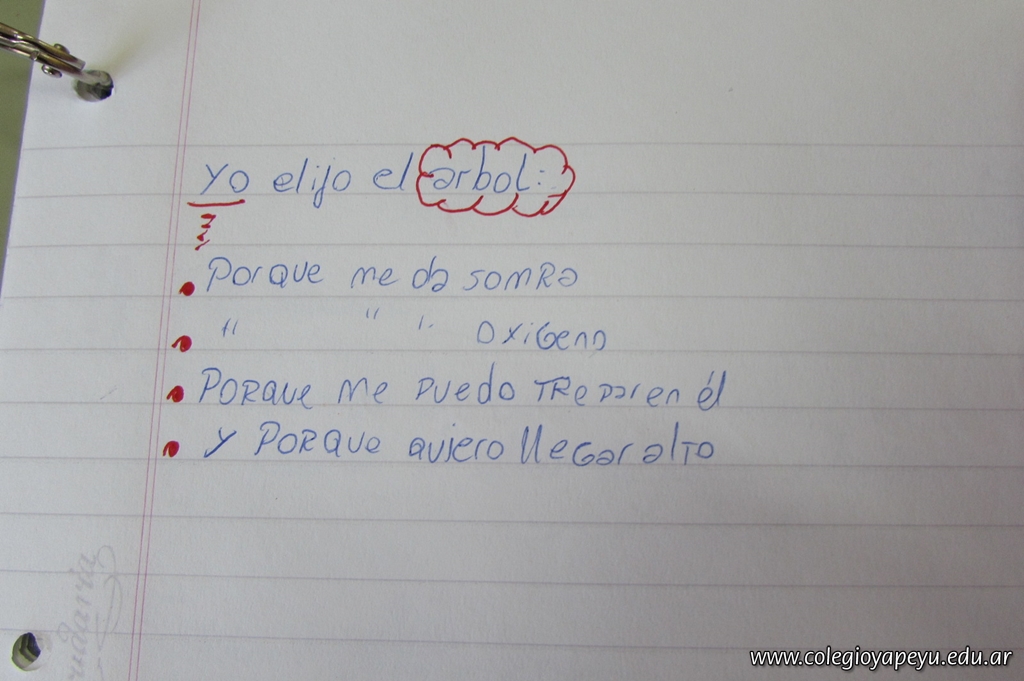 Yo elijo el arbol:
Porque me da somRa
" " " oxiGeno
PORque me puedo TRepar en él
y PORque quiero lleGar alTo
rudavia
www.colegioyapeyu.edu.ar